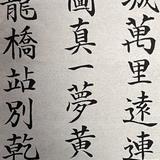 城萬里遠連
圖真一夢黃
龍橋站別乾